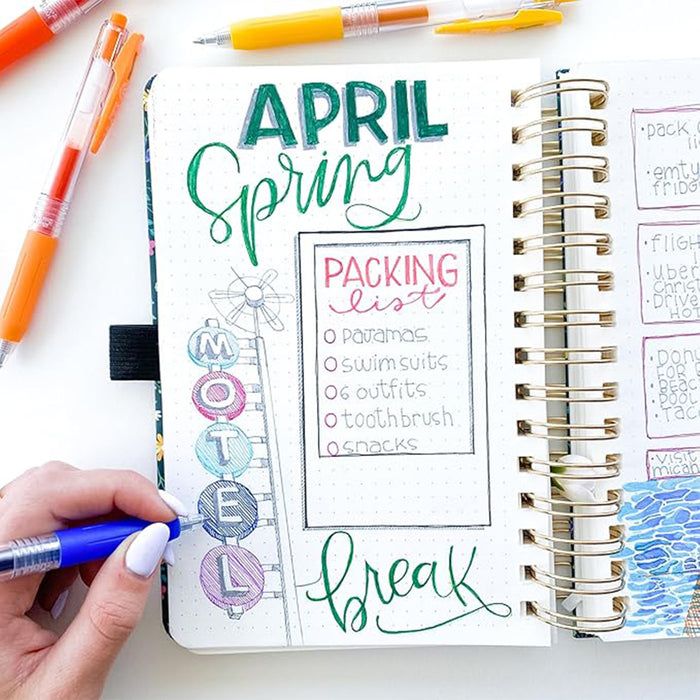 APRIL
Spring
PACKING
list
pajamas
swimsuits
6 outfits
toothbrush
snacks
MOTEL
break
• pack
• emty
fridg
• fligh
• uber
Christ
• Driv
Hot
• Don
FOR
Bea
Pool
Tac
visit
micah